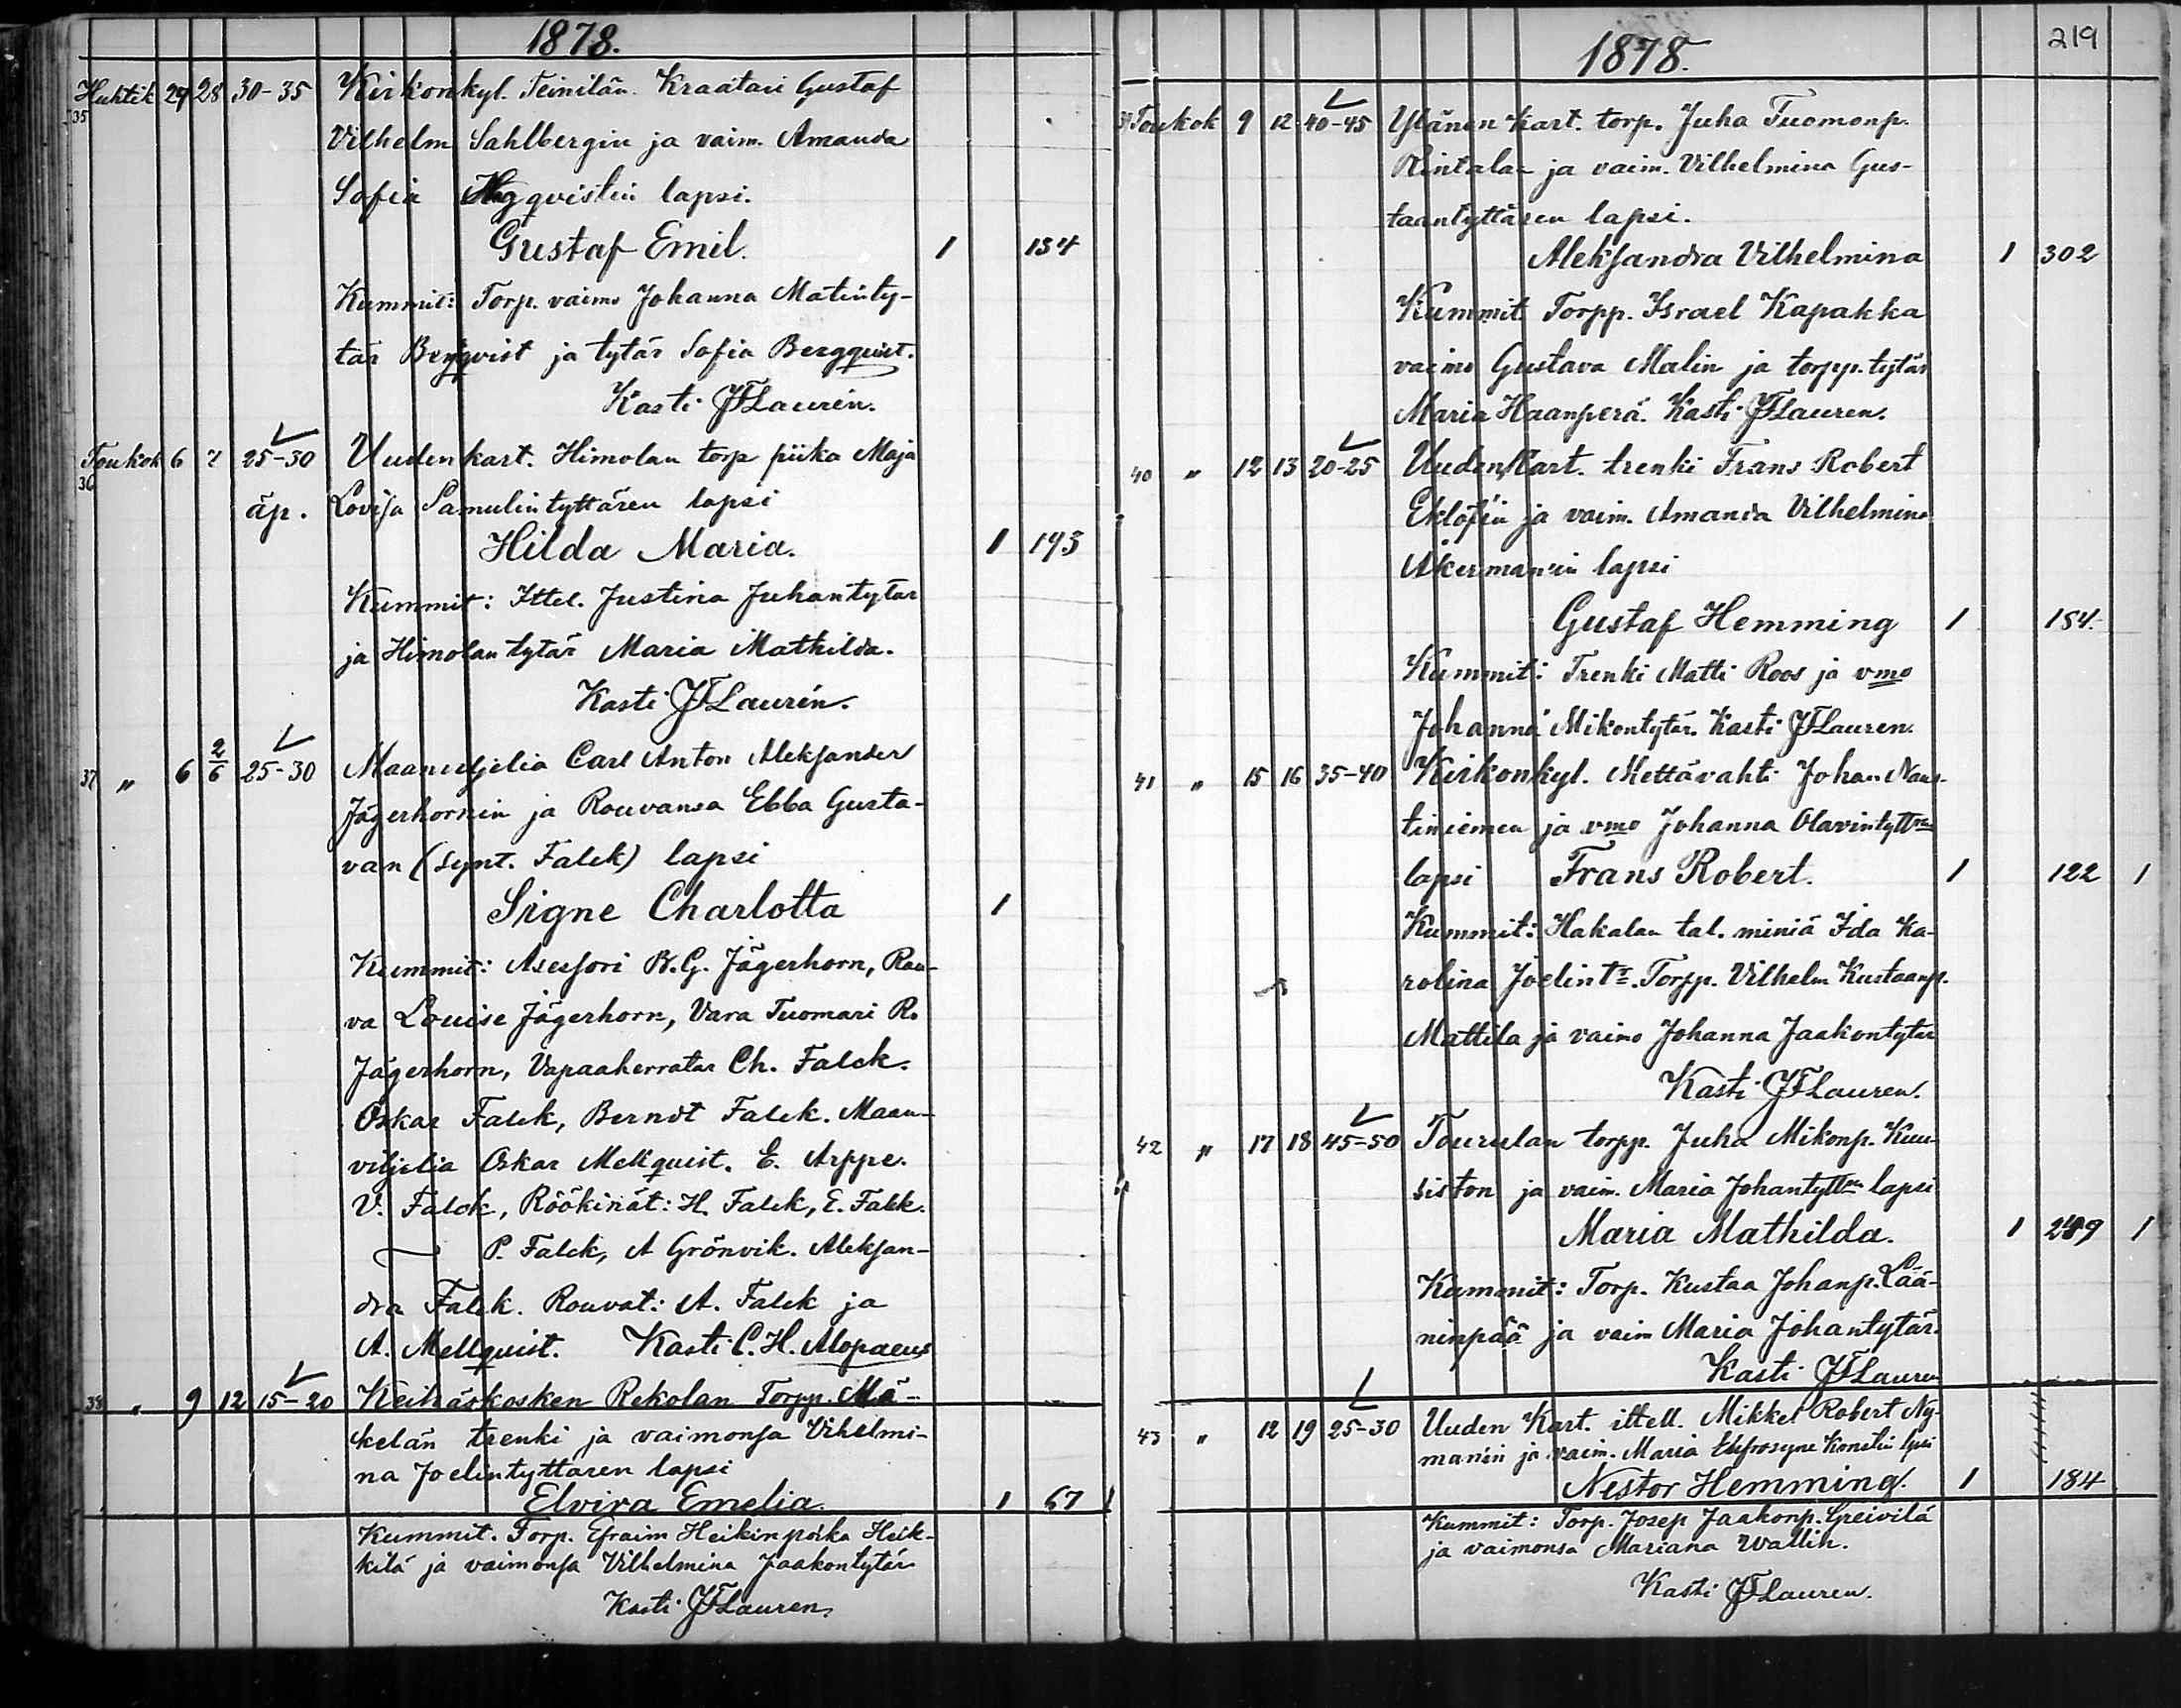 1878.
Huhtik 27 28 30-35 Kirkonkyl. Teinilän Kraatari Gustaf
35 Vilhelm Sahlbergin ja vaim. Amanda
Sofia Hägqvistin lapsi.
Gustaf Emil. 1 134
Kummit: Torp. vaimo Johanna Matinty-
tär Bergqvist ja tytär Sofia Bergquist.
Kasti JFLaurén.
Toukok 6 7 25-30 Uudenkart. Himolan torp piika Maja
36 äp. Lovisa Samulintyttären lapsi
Hilda Maria. 1 193
Kummit: Ittel. Justina Juhantytar
ja Himolan tytär Maria Mathilda.
Kasti JFLaurén.
37 " 6 2/6 25-30 Maanviljelia Carl Anton Aleksander
Jägerhornin ja Rouvansa Ebba Gusta-
van (synt. Falck) lapsi
Signe Charlotta 1
Kummit: Asessori B.G. Jägerhorn, Rou-
va Louise Jägerhorn, Vara Tuomari R.
Jägerhorn, Vapaaherratar Ch. Falck.
Oskar Falck, Berndt Falck. Maan-
viljelia Oskar Mellquist. E. Arppe.
V. Falck, Röökinät: H. Falck, E. Falck.
P. Falck, A Grönvik. Aleksan-
dra Falck. Rouvat: A. Falck ja
A. Mellquist. Kasti C. H. Alopaeus
38 " 9 12 15-20 Keihäskosken Rekolan Torpp. Mä-
kelän trenki ja vaimonsa Vihelmi-
na Joelintyttären lapsi
Elvira Emelia. 1 67 1
Kummit. Torp. Efraim Heikinpoika Heik-
kilä ja vaimonsa Vilhelmina Jaakontytär
Kasti JFLauren.
219
1878.
39 Toukok 9 12 40-45 Ylänen kart. torp. Juha Tuomonp.
Rintalan ja vaim. Vilhelmina Gus-
taantyttären lapsi.
Aleksandra Vilhelmina 1 302
Kummit. Torpp. Israel Kapakka
vaimo Gustava Malin ja torpp. tytär
Maria Haanperä. Kasti JFLauren.
40 " 12 13 20-25 Uuden Kart. trenki Frans Robert
Eklöf'in ja vaim. Amanda Vilhelmina
Åkerman'in lapsi
Gustaf Hemming 1 184.
Kummit: Trenki Matti Roos ja vmo
Johanna Mikontytär. Kasti JFLauren.
41 " 15 16 35-40 Kirkonkyl. Mettävahti Johan Naus-
tiniemen ja vmo Johanna Olavintyttren
lapsi Frans Robert. 1 122 1
Kummit: Hakalan tal. miniä Ida Ka-
rolina Joelintr. Torpp. Vilhelm Kustaanp.
Mattila ja vaimo Johanna Jaakontytär
Kasti JFLauren.
42 " 17 18 45-50 Tourulan torpp. Juha Mikonp. Kuu-
siston ja vaim. Maria Johantyttren lapsi
Maria Mathilda. 1 289 1
Kummit: Torp. Kustaa Johanp. Lää-
ninpää ja vaim Maria Johantytär.
Kasti JFLauren
43 " 12 19 25-30 Uuden Kart. ittell. Mikkel Robert Ny-
man'in ja vaim. Maria Eufrosyne lpsi
Nestor Hemming. 1 184
Kummit: Torp. Josep Jaakonp. Greivilä
ja vaimonsa Mariana Wallin.
Kasti JFLauren.